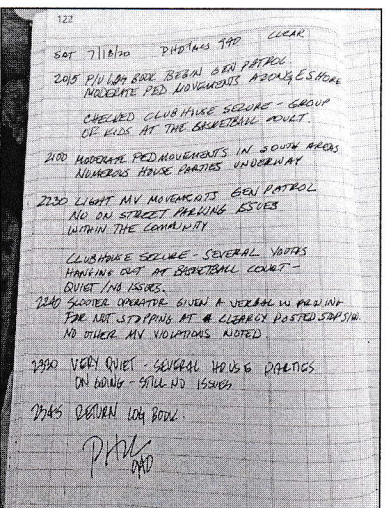 122
SAT 7/18/20 CLEAR
2015 P/U LOG BOOK BEGIN GEN PATROL
MODERATE PED MOVEMENTS ALONG E SHORE
CHECKED CLUBHOUSE SECURE - GROUP
OF KIDS AT THE BASKETBALL COURT.
2100 MODERATE PED MOVEMENTS IN SOUTH AREAS
NUMEROUS HOUSE PARTIES UNDERWAY
2230 LIGHT MV MOVEMENTS GEN PATROL
NO ON STREET PARKING ISSUES
WITHIN THE COMMUNITY
CLUBHOUSE SECURE - SEVERAL YOUTHS
HANGING OUT AT BASKETBALL COURT -
QUIET / NO ISSUES.
2240 SCOOTER OPERATOR GIVEN A VERBAL WARNING
FOR NOT STOPPING AT A CLEARLY POSTED STOP SIGN.
NO OTHER MV VIOLATIONS NOTED.
2330 VERY QUIET - SEVERAL HOUSE PARTIES
ON GOING - STILL NO ISSUES
2345 RETURN LOG BOOK.